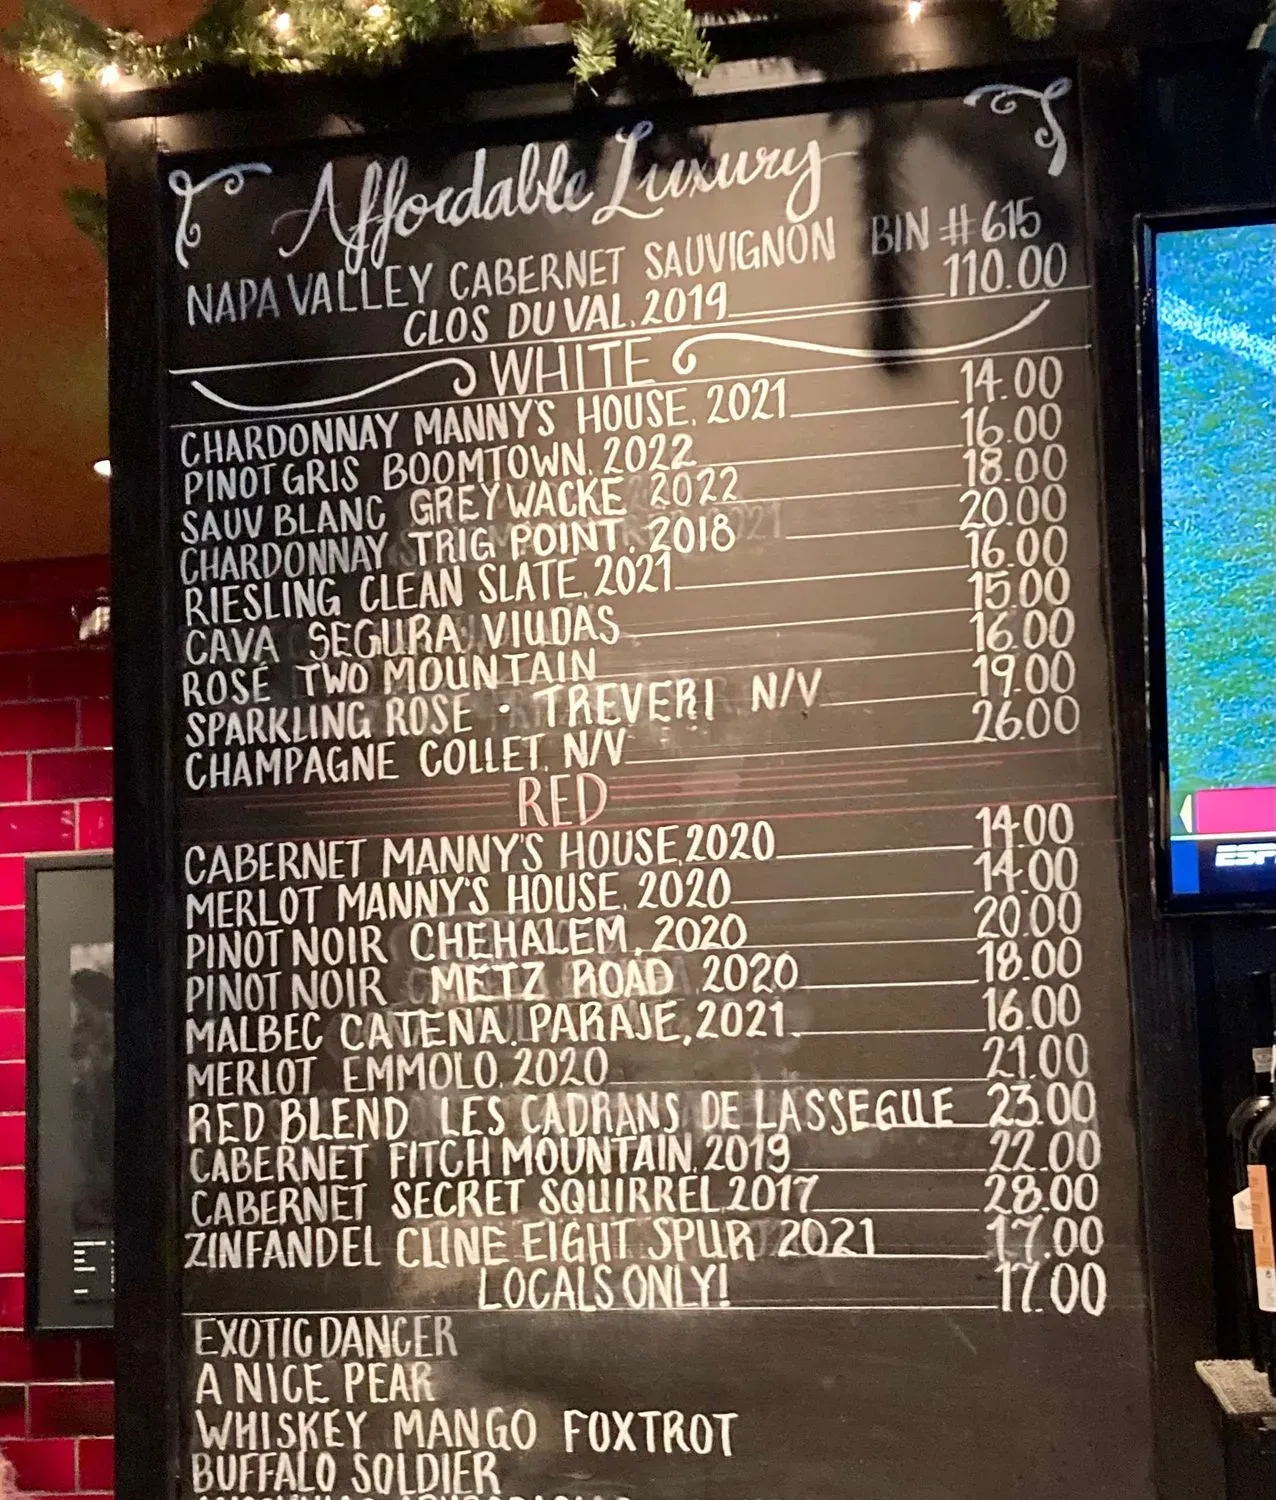 Affordable Luxury
NAPA VALLEY CABERNET SAUVIGNON BIN # 615
CLOS DU VAL, 2019 110.00
WHITE
CHARDONNAY MANNY'S HOUSE, 2021 14.00
PINOT GRIS BOOMTOWN, 2022 16.00
SAUV BLANC GREYWACKE 2022 18.00
CHARDONNAY TRIG POINT, 2018 20.00
RIESLING CLEAN SLATE, 2021 16.00
CAVA SEGURA VIUDAS 15.00
ROSÉ TWO MOUNTAIN 16.00
SPARKLING ROSE • TREVERI N/V 19.00
CHAMPAGNE COLLET, N/V 26.00
RED
CABERNET MANNY'S HOUSE, 2020 14.00
MERLOT MANNY'S HOUSE, 2020 14.00
PINOT NOIR CHEHALEM, 2020 20.00
PINOT NOIR METZ ROAD 2020 18.00
MALBEC CATENA, PARAJE, 2021 16.00
MERLOT EMMOLO, 2020 21.00
RED BLEND LES CADRANS DE LASSEGUE 23.00
CABERNET FITCH MOUNTAIN, 2019 22.00
CABERNET SECRET SQUIRREL, 2017 28.00
ZINFANDEL CLINE EIGHT SPUR 2021 17.00
LOCALS ONLY! 17.00
EXOTIC DANCER
A NICE PEAR
WHISKEY MANGO FOXTROT
BUFFALO SOLDIER